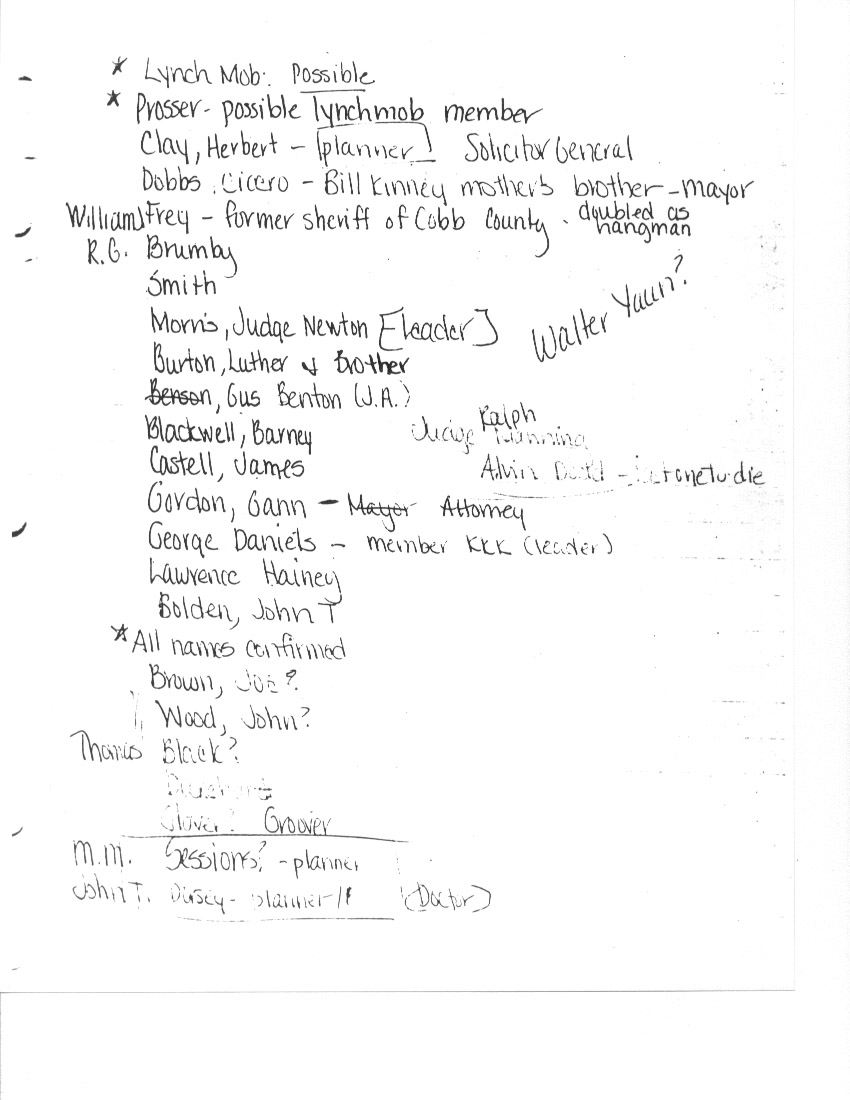 * Lynch Mob: Possible
* Prosser - possible lynchmob member
Clay, Herbert - [planner] Solicitor General
Dobbs, Cicero - Bill Kinney mother's brother - mayor
William J Frey - former sheriff of Cobb County. doubled as hangman
R.G. Brumby
Smith
Morris, Judge Newton [leader]
Walter Yaun?
Burton, Luther & brother
Benson, Gus Benton (J.A.)
Blackwell, Barney
Ralph
Castell, James
Alvin
Gordon, Gann - Mayor Attorney
George Daniels - member KKK (leader)
Lawrence Hainey
Bolden, John T
* All names confirmed
Brown, Joe?
Wood, John?
Thomas Black?
Glover? Groover
M.M. Sessions? - planner
John T. - planner (Doctor)